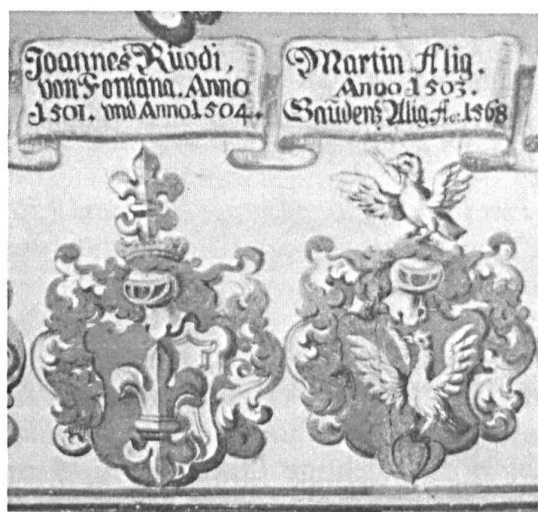 Joannes Rüodi,
von Fontana. Anno
1501. und Anno 1504.
Martin Alig.
Anno 1503.
Gaudentz Alig. Ao: 1568